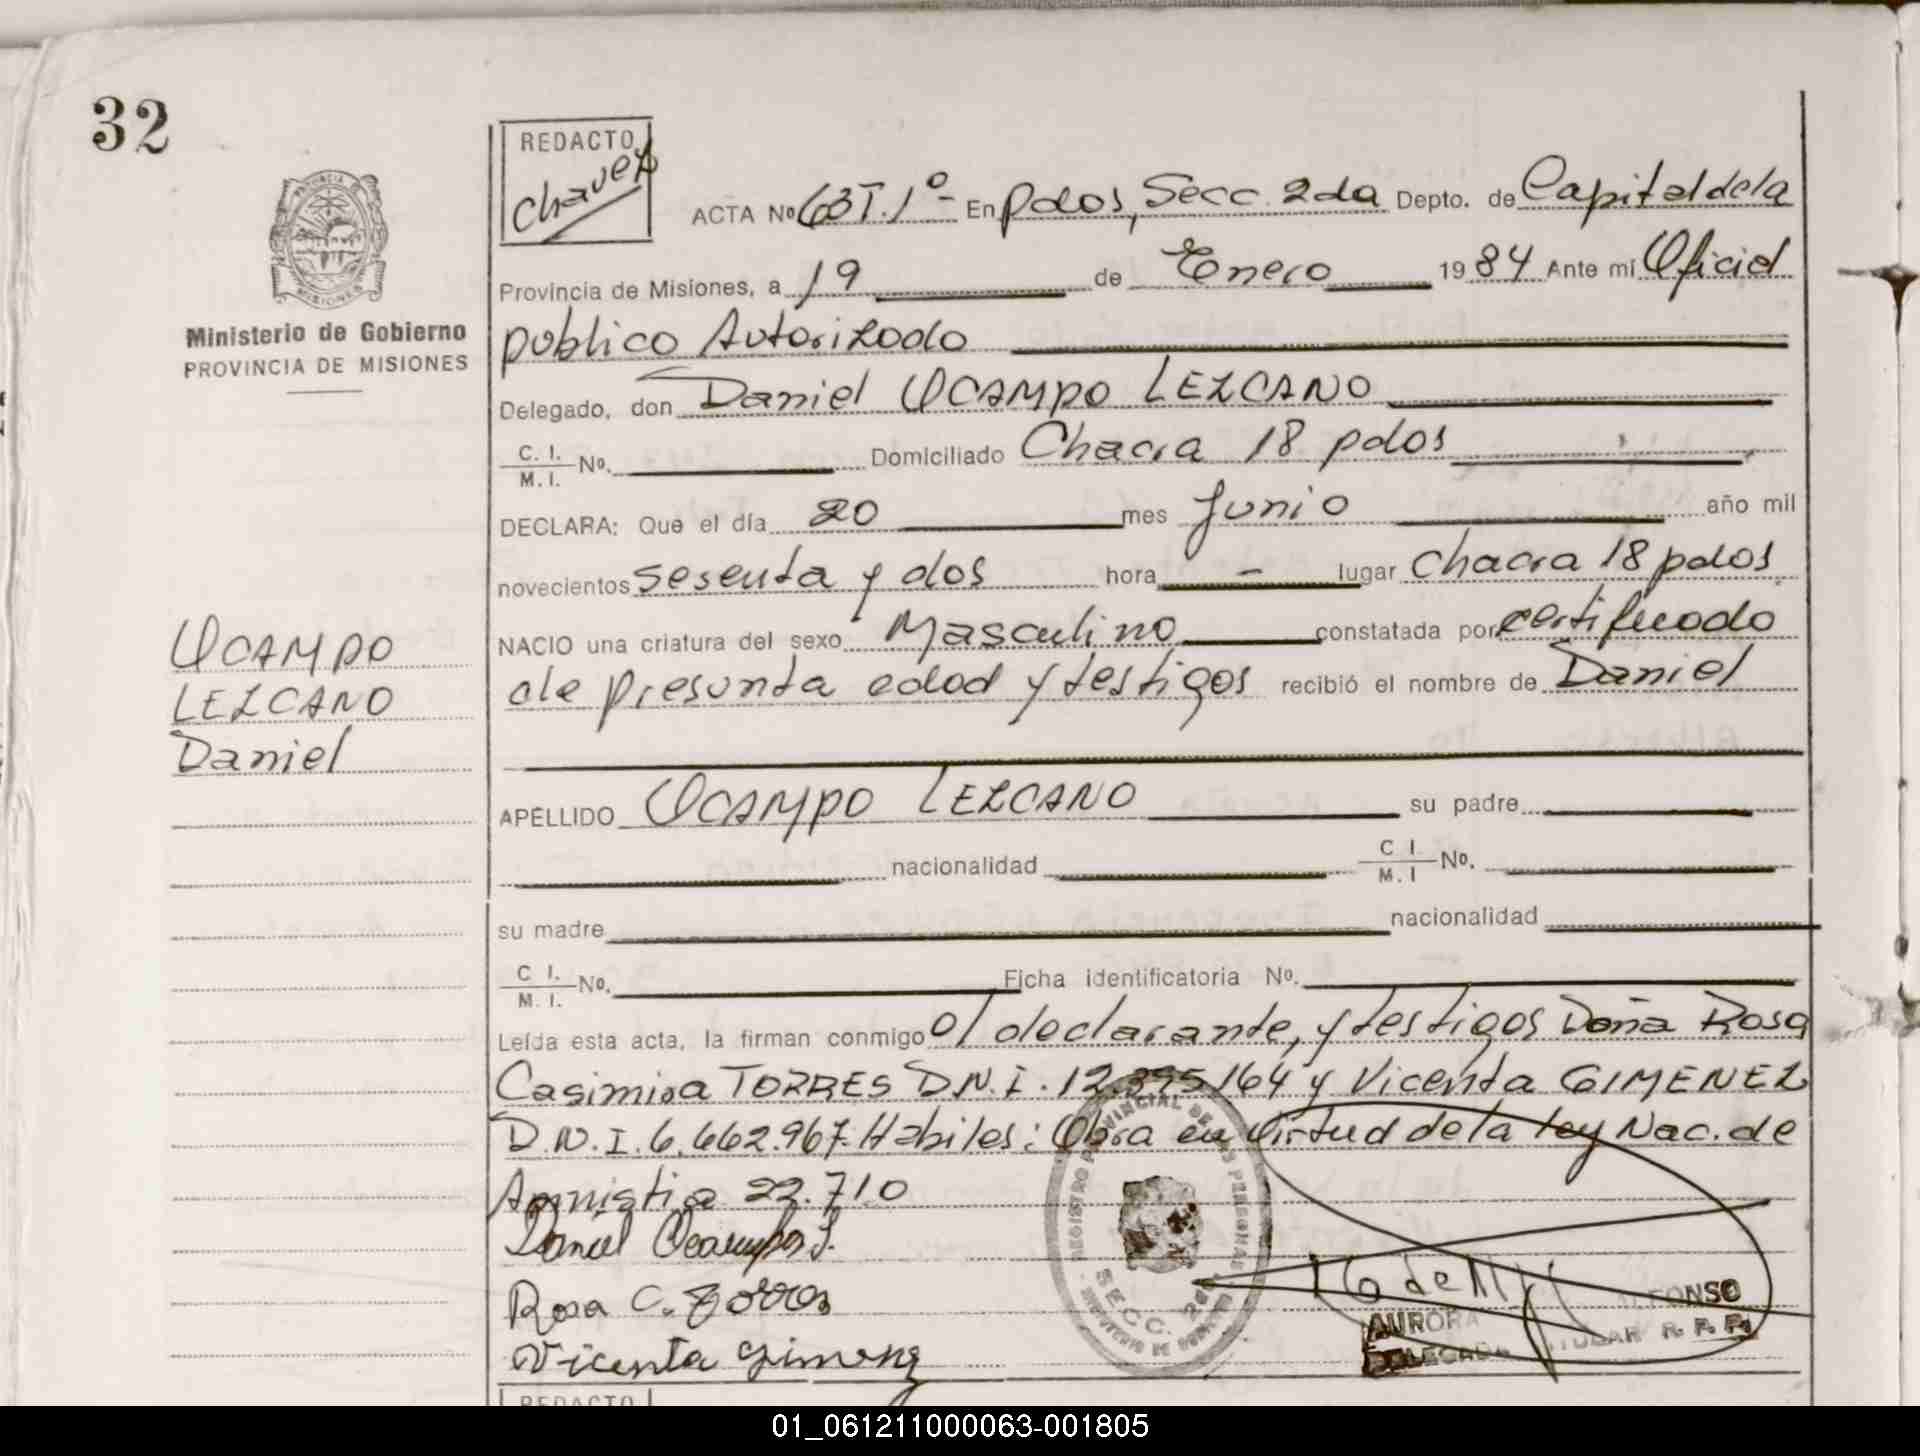 32
REDACTO
Chavez
ACTA Nº 63 T.1º - En Pdos, Secc. 2da Depto. de Capital de la
Provincia de Misiones, a 19 de Enero 1984 Ante mi Oficial
Ministerio de Gobierno
PROVINCIA DE MISIONES
publico Autorizado
Delegado, don Daniel OCAMPO LEZCANO
C. I. / M. I. No. Domiciliado Chacra 18 pdos
DECLARA: Que el día 20 mes Junio año mil
novecientos sesenta y dos hora - lugar chacra 18 pdos
NACIO una criatura del sexo Masculino constatada por certificado
de presunta edad y testigos recibió el nombre de Daniel
OCAMPO
LEZCANO
Daniel
APELLIDO OCAMPO LEZCANO su padre
nacionalidad C I. / M. I No.
su madre nacionalidad
C I. / M. I. No. Ficha identificatoria No.
Leída esta acta, la firman conmigo el declarante, y testigos Doña Rosa
Casimira TORRES D.N.I. 12.395164 y Vicenta GIMENEZ
D.N.I. 6.662.967. Habiles: Obra en virtud de la ley Nac. de
Amnistia 22.710
Daniel Ocampos L.
Rosa C. Torres
Vicenta Gimenez
REGISTRO PROVINCIAL DE LAS PERSONAS
SECC. 2da
AURORA ALFONSO
DELEGADA TITULAR R. P. P.
REDACTO
01_061211000063-001805